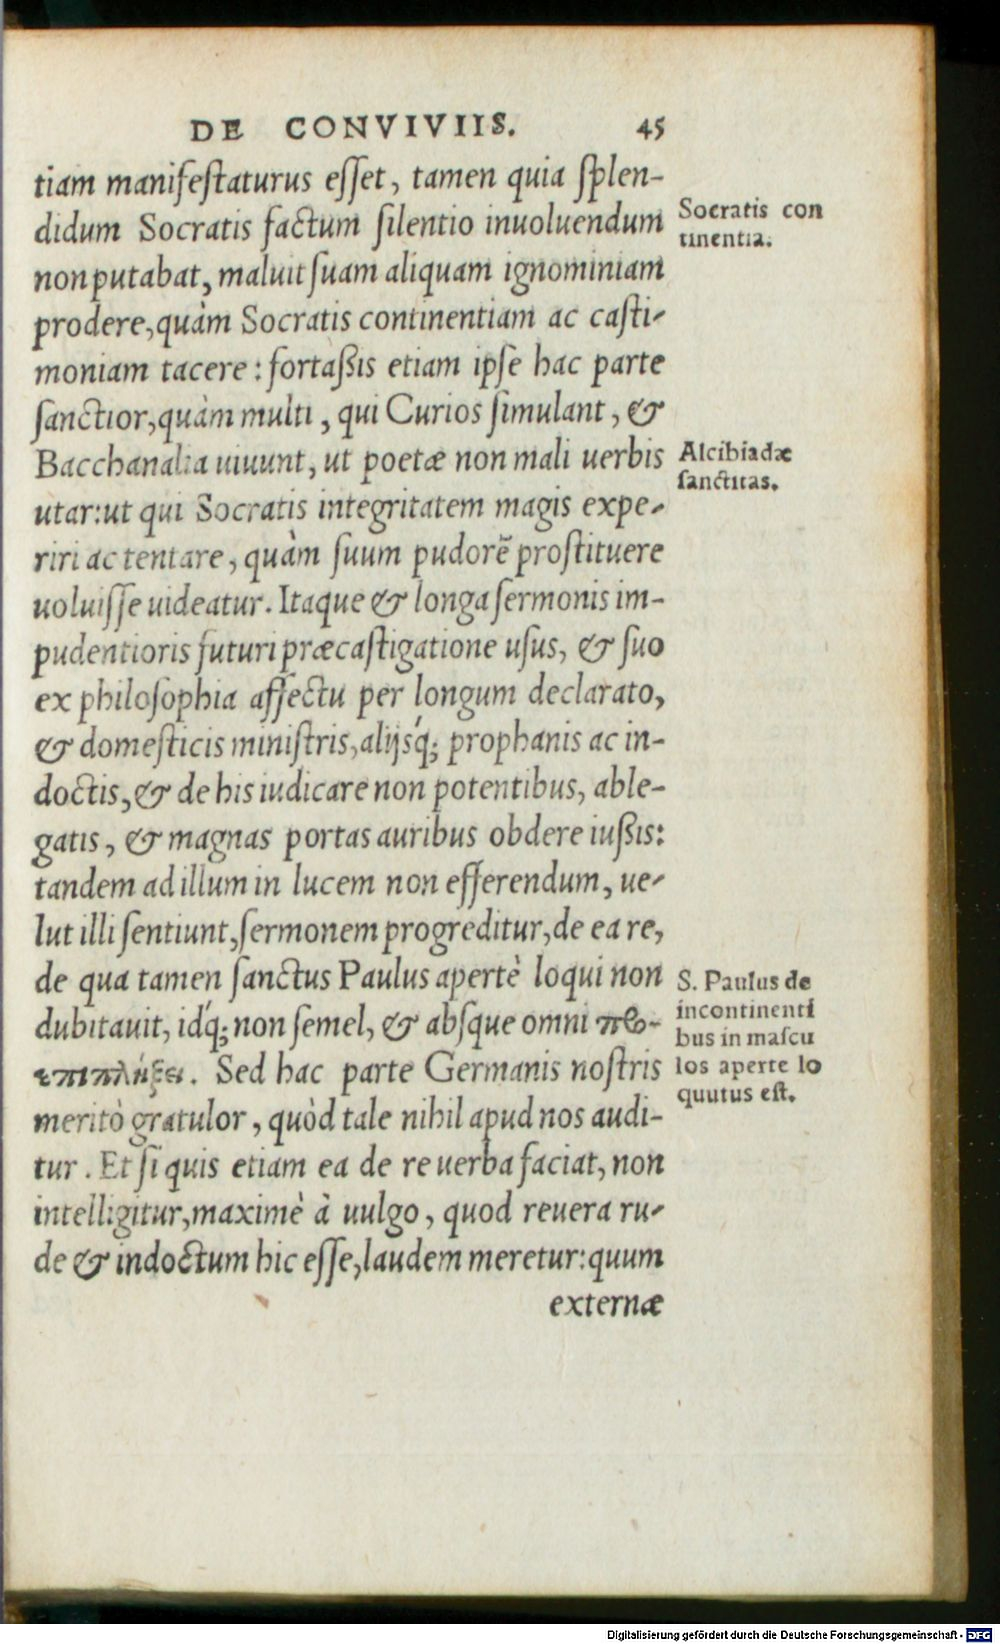 DE CONVIVIIS. 45
tiam manifeſtaturus eſſet, tamen quia ſplen-
didum Socratis factum ſilentio inuoluendum
non putabat, maluit ſuam aliquam ignominiam
prodere, quàm Socratis continentiam ac caſti-
moniam tacere: fortaßis etiam ipſe hac parte
ſanctior, quàm multi, qui Curios ſimulant, &
Bacchanalia uiuunt, ut poetæ non mali uerbis
utar: ut qui Socratis integritatem magis expe-
riri ac tentare, quàm ſuum pudorẽ proſtituere
uoluiſſe uideatur. Itaque & longa ſermonis im-
pudentioris futuri præcaſtigatione uſus, & ſuo
ex philoſophia affectu per longum declarato,
& domeſticis miniſtris, alijsq́; prophanis ac in-
doctis, & de his iudicare non potentibus, able-
gatis, & magnas portas auribus obdere iußis:
tandem ad illum in lucem non efferendum, ue-
lut illi ſentiunt, ſermonem progreditur, de ea re,
de qua tamen ſanctus Paulus apertè loqui non
dubitauit, idq́; non ſemel, & abſque omni
Sed hac parte Germanis noſtris
meritò gratulor, quòd tale nihil apud nos audi-
tur. Et ſi quis etiam ea de re uerba faciat, non
intelligitur, maximè à uulgo, quod reuera ru-
de & indoctum hic eſſe, laudem meretur: quum
externæ
Socratis con
tinentia.
Alcibiadæ
ſanctitas.
S. Paulus de
incontinenti
bus in maſcu
los aperte lo
quutus eſt.
Digitalisierung gefördert durch die Deutsche Forschungsgemeinschaft - DFG